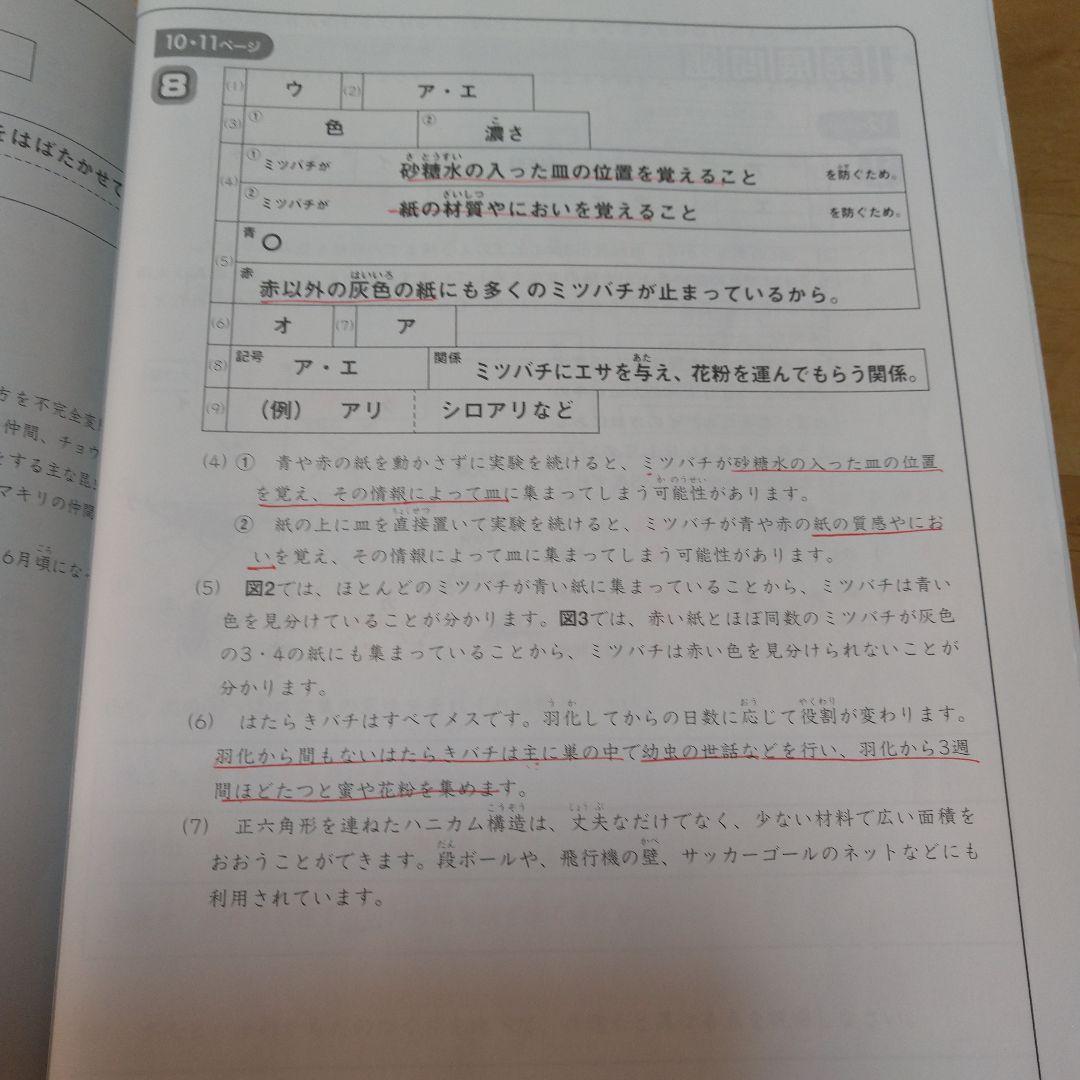 10・11ページ
8
(1) ウ (2) ア・エ
(3) ① 色 ② 濃さ
(4) ① ミツバチが 砂糖水の入った皿の位置を覚えること を防ぐため。
② ミツバチが 紙の材質やにおいを覚えること を防ぐため。
(5) 青 ○
赤 赤以外の灰色の紙にも多くのミツバチが止まっているから。
(6) オ (7) ア
(8) 記号 ア・エ 関係 ミツバチにエサを与え、花粉を運んでもらう関係。
(9) (例) アリ シロアリなど
(4) ① 青や赤の紙を動かさずに実験を続けると、ミツバチが砂糖水の入った皿の位置
を覚え、その情報によって皿に集まってしまう可能性があります。
② 紙の上に皿を直接置いて実験を続けると、ミツバチが青や赤の紙の質感やにお
いを覚え、その情報によって皿に集まってしまう可能性があります。
(5) 図2では、ほとんどのミツバチが青い紙に集まっていることから、ミツバチは青い
色を見分けていることが分かります。図3では、赤い紙とほぼ同数のミツバチが灰色
の3・4の紙にも集まっていることから、ミツバチは赤い色を見分けられないことが
分かります。
(6) はたらきバチはすべてメスです。羽化してからの日数に応じて役割が変わります。
羽化から間もないはたらきバチは主に巣の中で幼虫の世話などを行い、羽化から3週
間ほどたつと蜜や花粉を集めます。
(7) 正六角形を連ねたハニカム構造は、丈夫なだけでなく、少ない材料で広い面積を
おおうことができます。段ボールや、飛行機の壁、サッカーゴールのネットなどにも
利用されています。
をはばたかせて
方を不完全変
仲間、チョウ
とする主な昆
マキリの仲間
6月頃にな